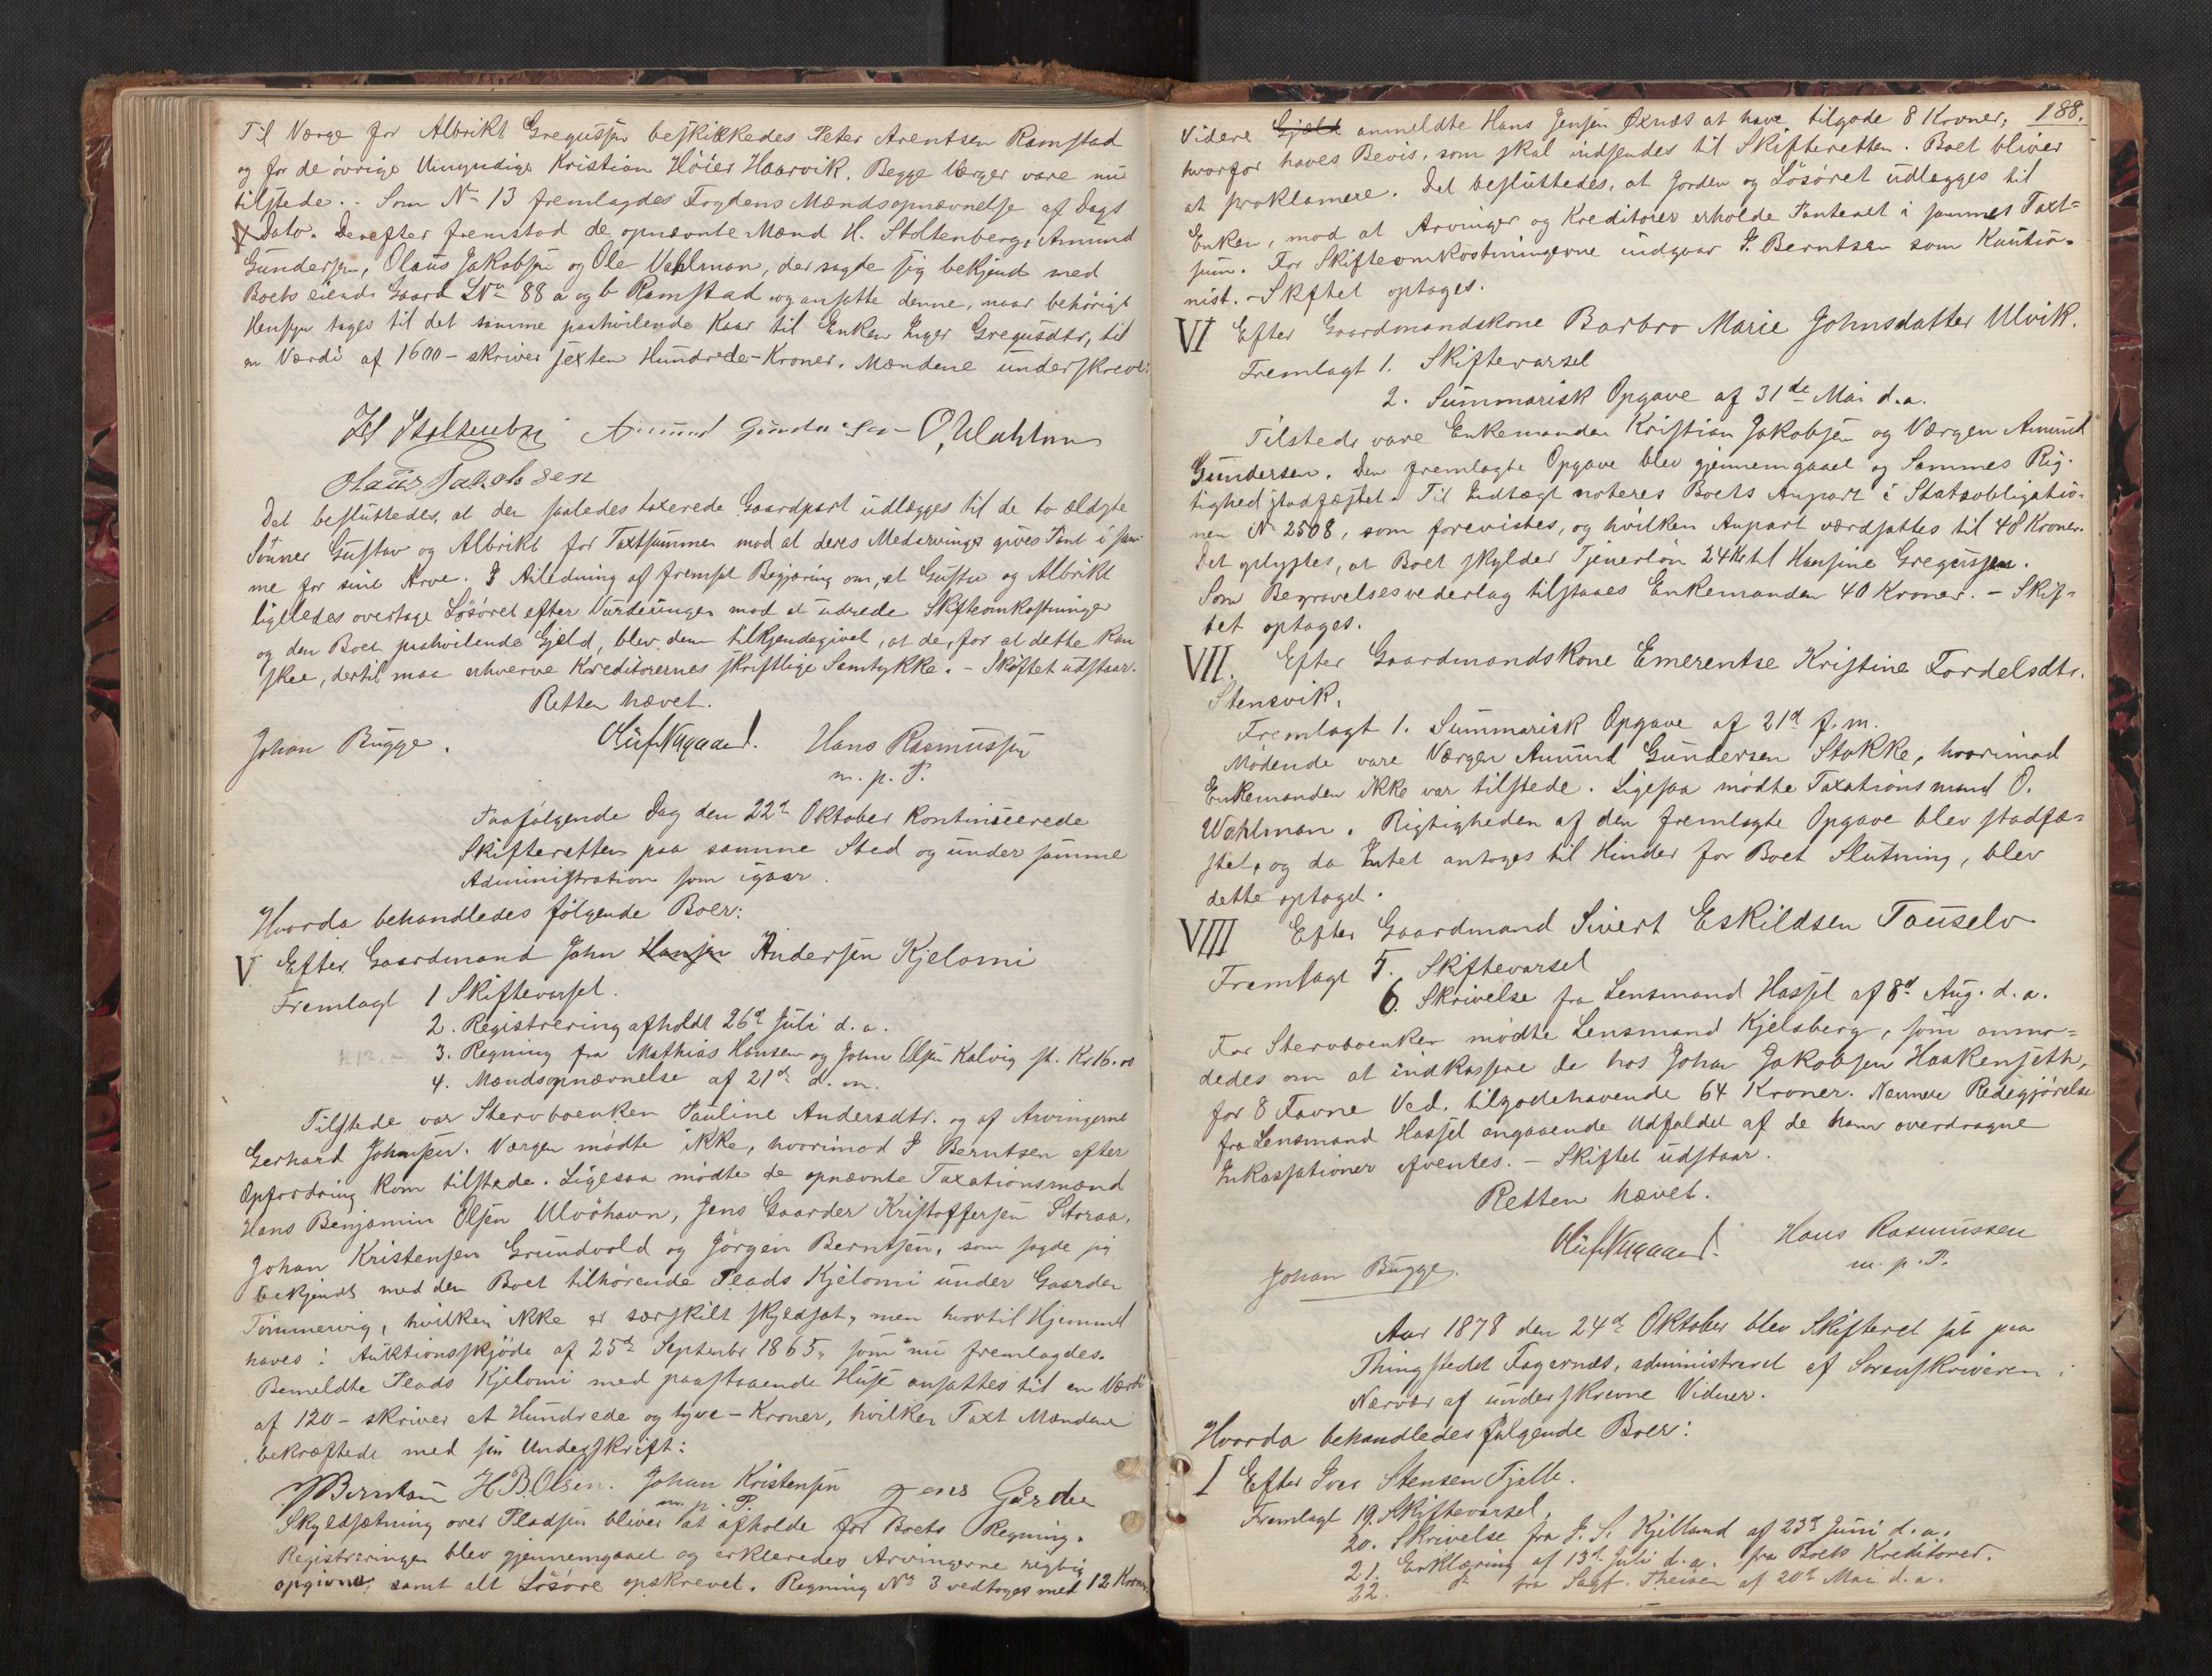 Til Værge for Albrikt Gregussen beskikkedes Peter Arentsen Ramstad
og for de øvrige Umyndige Kristian Höier Haarvik. Begge Værger vare nu
tilstede. - Som No 13 fremlagdes Fogdens Mændsopnævnelse af Dags
Dato. Derefter fremstod de opnævnte Mænd H. Stoltenberg, Amund
Gundersen, Olaus Jakobsen og Ole Wahlman, der sagde sig bekjend med
Boets eiende Gaard LNo 88 a og b Ramstad og ansatte denne, naar behörigt
Hensyn tages til det samme paahvilende Kaar til Enken Inger Gregusdtr, til
en Værdi af 1600 - skriver sexten Hundrede - Kroner. Mændene underskreve:
H Stoltenberg Amund Gundersen O, Wahlman
Olaus Jakobsen
Det besluttedes, at den saaledes taxerede Gaardpart udlægges til de to ældste
Sönner Gustav og Albrikt for Taxtsummen mod at deres Medarvinger gives Pant i sam-
me for sine Arve. I Anledning af fremsat Begjæring om, at Gustav og Albrikt
ligeledes overtage Lösöret efter Vurderingen mod at udrede Skifteomkostninger
og den Boet paahvilende Gjeld, blev dem tilkjendegivet, at de, for at dette kan
skee, dertil maa erhverve Kreditorernes skriftlige Samtykke. - Skiftet udstaar.
Retten hævet.
Johan Bugge. Oluf Nygaard. Hans Rasmussen
m. p. P.
Paafølgende Dag den 22d Oktober kontinuerede
Skifteretten paa samme Sted og under samme
Administration som igaar.
Hvorda behandledes følgende Boer:
V Efter Gaardmand John Hansen Andersen Kjelomi
Fremlagt 1 Skiftevarsel.
2. Registrering afholdt 26d Juli d. a.
3. Regning fra Mathias Hansen og John Olsen Kalvig st. Kr 16.00
4. Mændsopnævnelse af 21d d. m.
Tilstede var Stervboenken Pauline Andersdtr. og af Arvingerne
Gerhard Johnsen. Værgen mödte ikke, hvorimod J Berntsen efter
Opfordring kom tilstede. Ligesaa mödte de opnævnte Taxationsmænd
Hans Benjamin Olsen Ulvöhavn, Jens Gaarder Kristoffersen Storaa,
Johan Kristensen Grundvold og Jörgen Berntsen, som sagde sig
bekjendt med den Boet tilhörende Plads Kjelomi under Gaarden
Tömmervig, hvilken ikke er særskilt skyldsat, men hvortil Hjemmel
haves i Auktionsskjöde af 25d Septembr 1865, som nu fremlagdes.
Bemeldte Plads Kjelomi med paastaaende Huse ansattes til en Værdi
af 120 - skriver et Hundrede og tyve - Kroner, hvilken Taxt Mændene
bekræftede med sin Underskrift:
J Berntsen H B. Olsen. Johan Kristensen Jens Gårder
m. p. P.
Skyldsætning over Pladsen bliver at afholde for Boets Regning.
Registreringen blev gjennemgaaet og erklæredes Arvingerne rigtig
opgivne, samt alt Lösöre opskrevet. Regning No 3 vedtoges med 12 Kroner
188.
Videre Gjæld anmeldte Hans Jensen Øxnæs at have tilgode 8 Kroner,
hvorfor haves Bevis, som skal indsendes til Skifteretten. Boet bliver
at proklamere. Det besluttedes, at Jorden og Lösöret udlægges til
Enken, mod at Arvinger og Kreditorer erholde Panteret i sammes Taxt=
sum. For Skifteomkostningerne indgaar J. Berntsen som Kautio-
nist. - Skiftet optages.
VI Efter Gaardmandskone Barbro Marie Johnsdatter Ulvik.
Fremlagt 1. Skiftevarsel
2. Summarisk Opgave af 31de Mai d. a.
Tilstede vare Enkemanden Kristian Jakobsen og Værgen Amund
Gundersen. Den fremlagte Opgave blev gjennemgaaet og Sammes Rig-
tighed stadfæstet. Til Indtægt noteres Boets Anpart i Statsobligatio-
nen No 2508, som forevistes, og hvilken Anpart værdsattes til 48 Kroner.
Det oplystes, at Boet skylder Tjenerlön 24 Kr til Hansine Gregussen.
Som Begravelsesvederlag tilstaaes Enkemanden 40 Kroner. - Skif-
tet optages.
VII. Efter Gaardmandskone Emerentse Kristine Tordelsdtr.
Stensvik.
Fremlagt 1. Summarisk Opgave af 21d f. m.
Mödende vare Værgen Amund Gundersen Stokke, hvorimod
Enkemanden ikke var tilstede. Ligesaa mödte Taxationsmand O.
Wahlman. Rigtigheden af den fremlagte Opgave blev stadfæ=
stet, og da Intet antoges til Hinder for Boet Slutning, blev
dette optaget.
VIII Efter Gaardmand Sivert Eskildsen Tauselv
Fremlagt 5. Skiftevarsel
6. Skrivelse fra Lensmand Hassel af 8d Aug. d. a.
For Stervboenken mödte Lensmand Kjelsberg, som anmo=
dedes om at indkassere de hos Johan Jakobsen Haakenseth,
for 8 Favne Ved, tilgodehavende 64 Kroner. Nærmere Redegjörelse
fra Lensmand Hassel angaaende Udfaldet af de ham overdragne
Inkassationer aventes. - Skiftet udstaar.
Retten hævet.
Johan Bugge. Oluf Nygaard. Hans Rasmussen
m. p. P.
Aar 1878 den 24d Oktober blev Skifteret sat paa
Thingstedet Fagernæs, administreret af Sorenskriveren i
Nærvær af underskrevne Vidner.
Hvorda behandledes følgende Boer:
I Efter Iver Stensen Fjelle.
Fremlagt 19. Skiftevarsel,
20. Skrivelse fra J. S. Kjelland af 23d Juni d. a.
21. Erklæring af 13d Juli d. a. fra Boets Kreditorer.
22. do fra Sagf. Theisen af 20d Mai d. a.